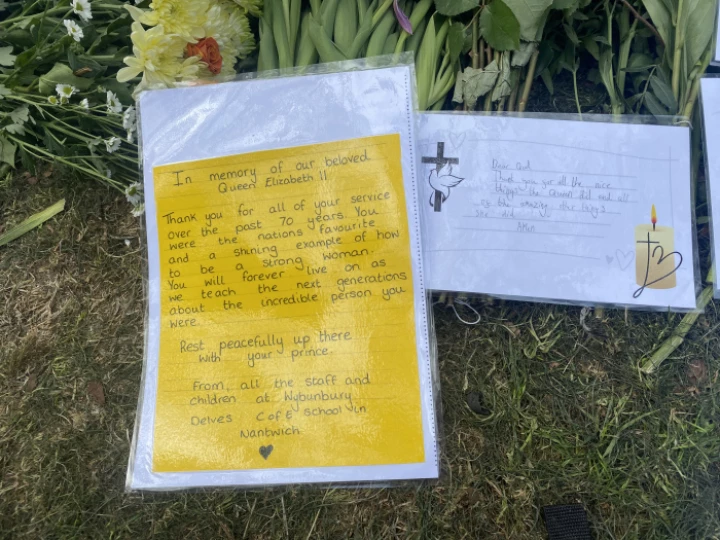 In memory of our beloved
Queen Elizabeth II
Thank you for all of your service
over the past 70 years. You
were the nations favourite
and a shining example of how
to be a strong woman.
You will forever live on as
we teach the next generations
about the incredible person you
were.
Rest peacefully up there
with your prince.
From, all the staff and
children at Wybunbury
Delves C of E School in
Nantwich
Dear God
Thank you for all the nice
things the Queen did and all
of the amazing other things
She did
Amen